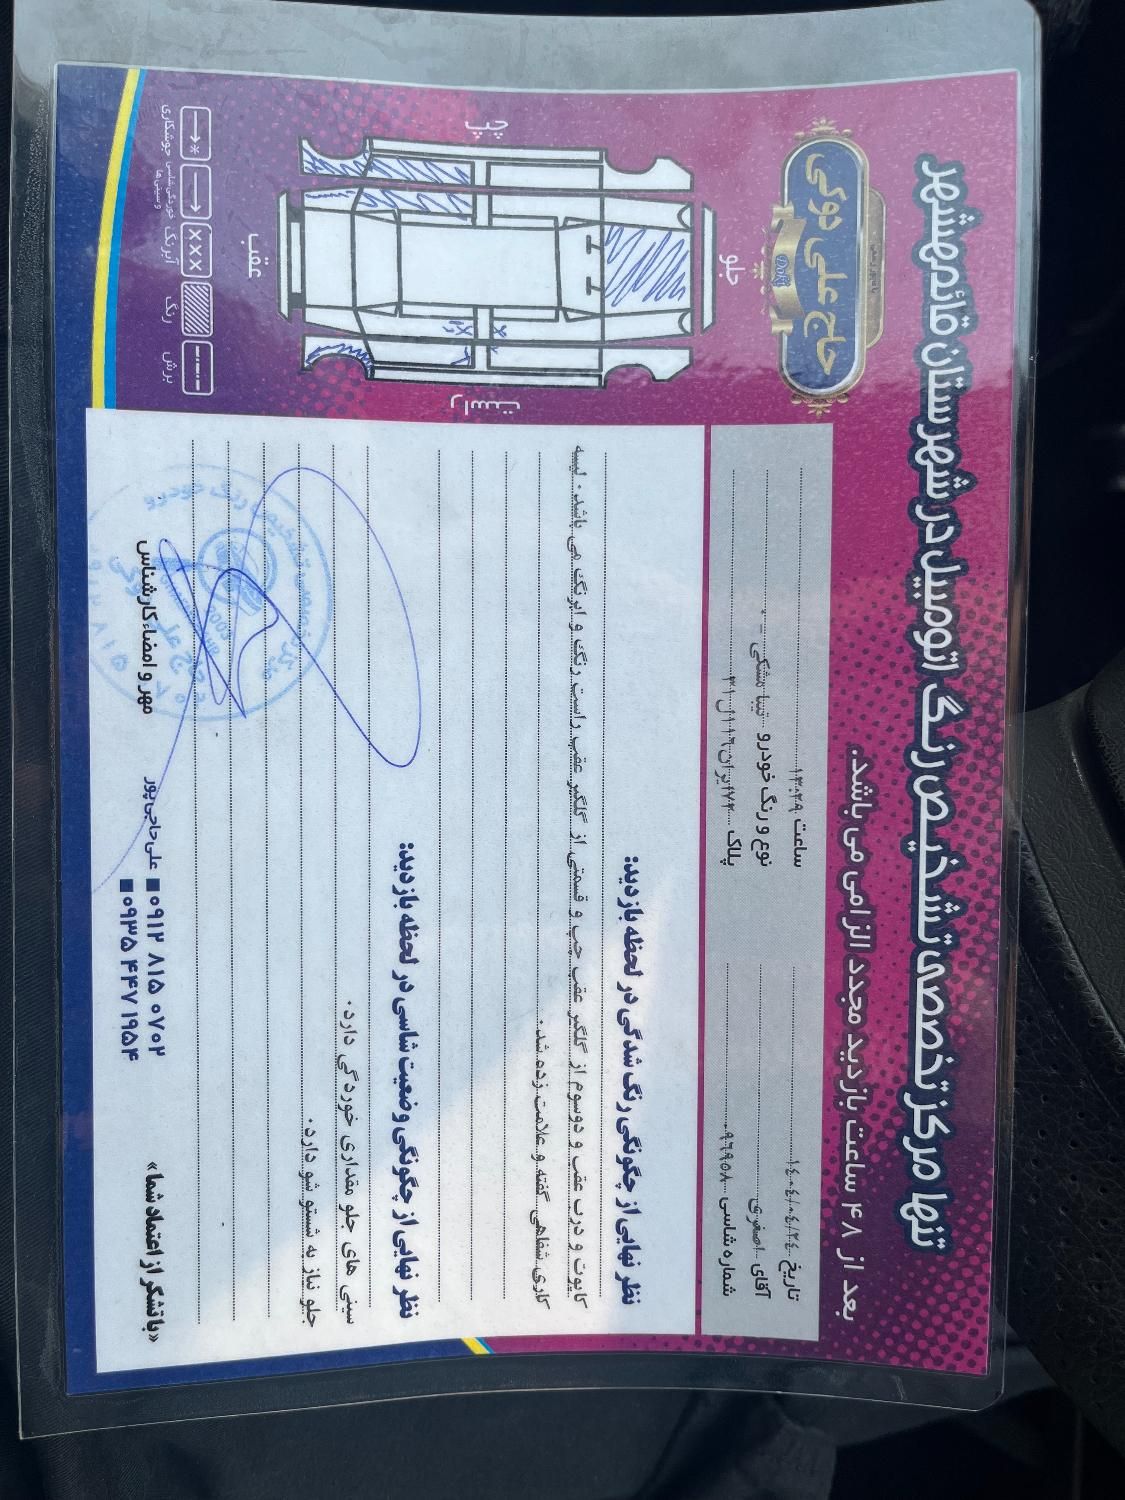 تنها مرکز تخصصی تشخیص رنگ اتومبیل در شهرستان قائم‌شهر
بعد از ۴۸ ساعت بازدید مجدد الزامی می باشد.
حاج علی دوکی
Doki
تاریخ ۱۴۰۴/۰۴/۲۴
ساعت ۱۳:۲۹
آقای اصغری
نوع و رنگ خودرو تیبا مشکی -
شماره شاسی ۹۶۹۵۸
پلاک
جلو
چپ
راست
عقب
نظر نهایی از چگونگی رنگ شدگی در لحظه بازدید:
کاپوت و درب عقب و دوسوم از گلگیر عقب چپ و قسمتی از گلگیر عقب راست رنگ و ابرنگ می باشد. لیسه
کاری شفاهی گفته و علامت زده شد.
نظر نهایی از چگونگی وضعیت شاسی در لحظه بازدید:
سینی های جلو مقداری خوردگی دارد.
جلو نیاز به شستو شو دارد.
جوشکاری
خوردگی شاسی و سینی ها
آبرنگ
رنگ
برش
مهر و امضاء کارشناس
علی حاجی پور
۰۹۱۲ ۸۱۵ ۰۷۰۲
۰۹۳۵ ۴۴۷ ۱۹۵۴
«با تشکر از اعتماد شما»